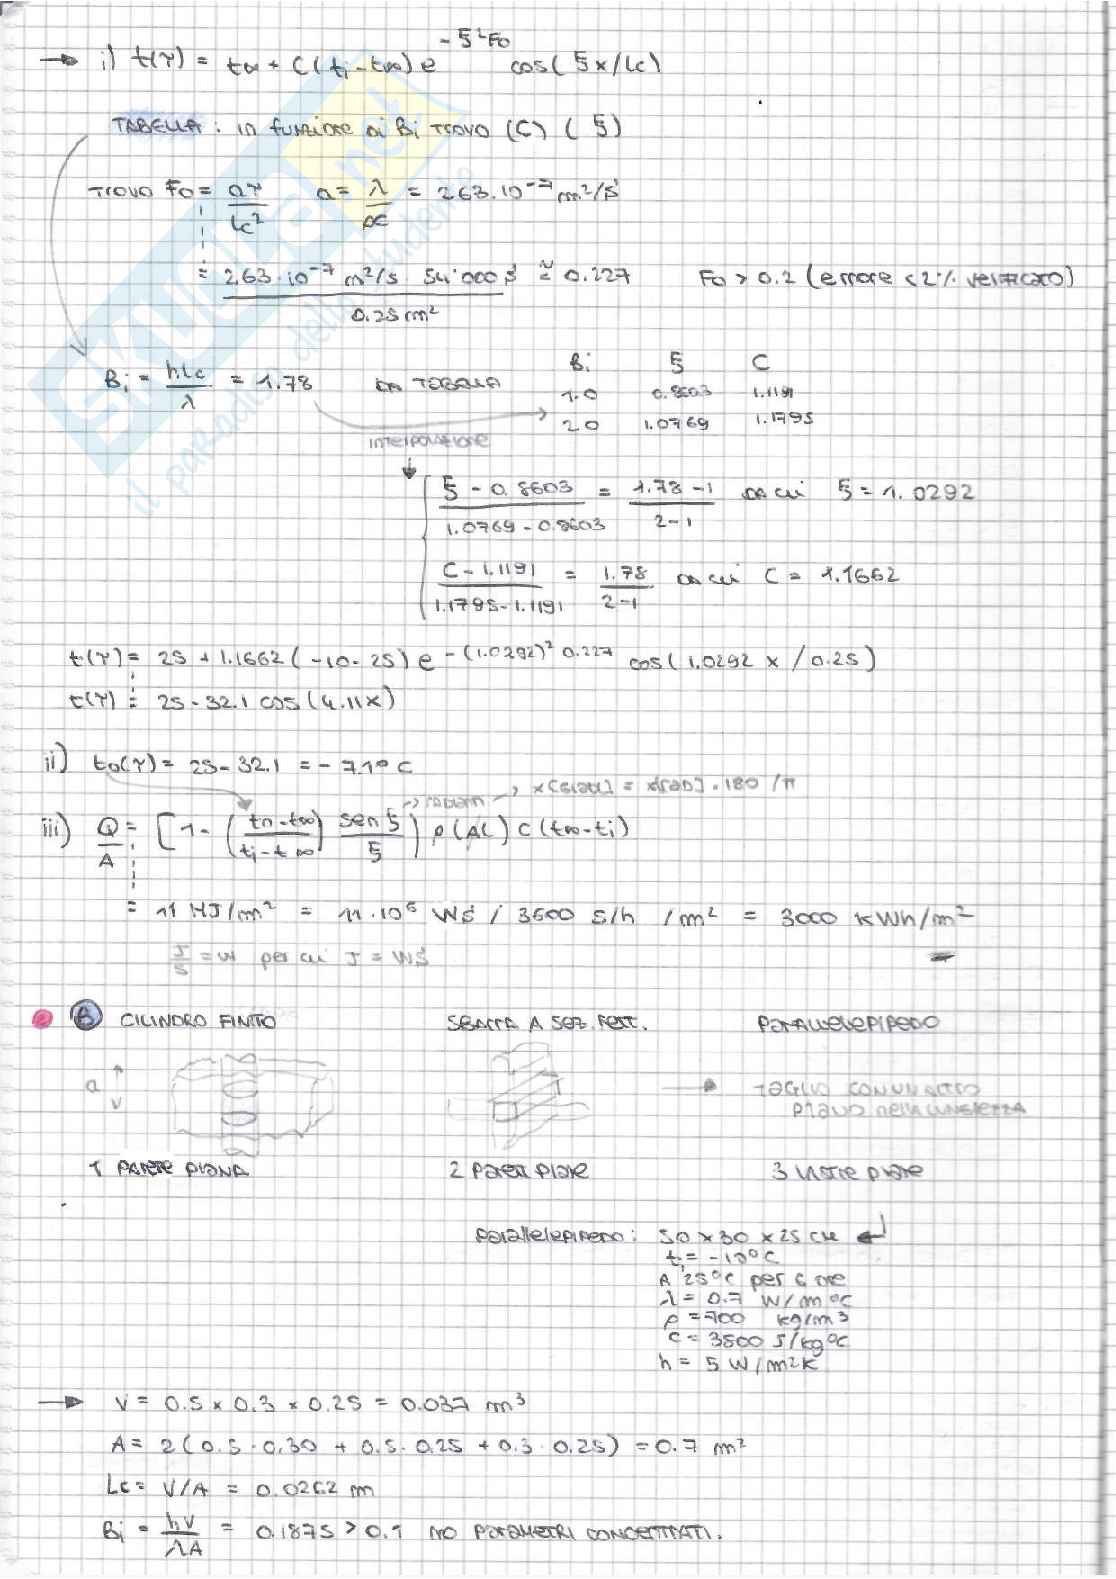 → i) t(τ) = t∞ + C(ti - t∞) e^-ξ²Fo cos(ξx/Lc)
TABELLA: in funzione di Bi trovo (C) (ξ)
TROVO Fo = aτ/Lc² a = λ/ρc = 2.63·10⁻⁷ m²/s
= 2.63·10⁻⁷ m²/s · 54'000 s / 0.25 m² ≅ 0.227 Fo > 0.2 (errore <2% verificato)
Bi = hLc/λ = 1.78 DA TABELLA
Bi ξ C
1.0 0.8603 1.1191
2.0 1.0769 1.1795
interpolazione
ξ - 0.8603 / 1.0769 - 0.8603 = 1.78 - 1 / 2-1 da cui ξ = 1.0292
C - 1.1191 / 1.1795 - 1.1191 = 1.78 / 2-1 da cui C = 1.1662
t(τ) = 25 + 1.1662 (-10-25) e^-(1.0292)² 0.227 cos(1.0292 x/0.25)
t(τ) = 25 - 32.1 cos(4.11x)
ii) t0(τ) = 25 - 32.1 = -7.1°C
→ radianti → x[gradi] = x[rad] · 180/π
iii) Q/A = [1 - (t0-t∞ / ti-t∞) sen ξ/ξ) ρ(AL) c (t∞-ti)
= 11 MJ/m² = 11·10⁶ WS / 3600 s/h /m² = 3000 kWh/m²
J/s = W per cui J = WS
B CILINDRO FINITO SBARRA A SEZ. RETT. PARALLELEPIPEDO
a
→ TAGLIO CON UN ALTRO
PIANO nella lunghezza
1 PARETE PIANA 2 PARETI PIANE 3 LASTRE PIANE
Parallelepipedo: 50 x 30 x 25 cm
ti = -10°C
A 25°C per 6 ore
λ = 0.7 W/m°C
ρ = 700 kg/m³
c = 3500 J/kg°C
h = 5 W/m²K
→ V = 0.5 x 0.3 x 0.25 = 0.037 m³
A = 2(0.5·0.30 + 0.5·0.25 + 0.3·0.25) = 0.7 m²
Lc = V/A = 0.0262 m
Bi = hV/λA = 0.1875 > 0.1 NO PARAMETRI CONCENTRATI.
SKUOLA.net
il paradiso dello studente